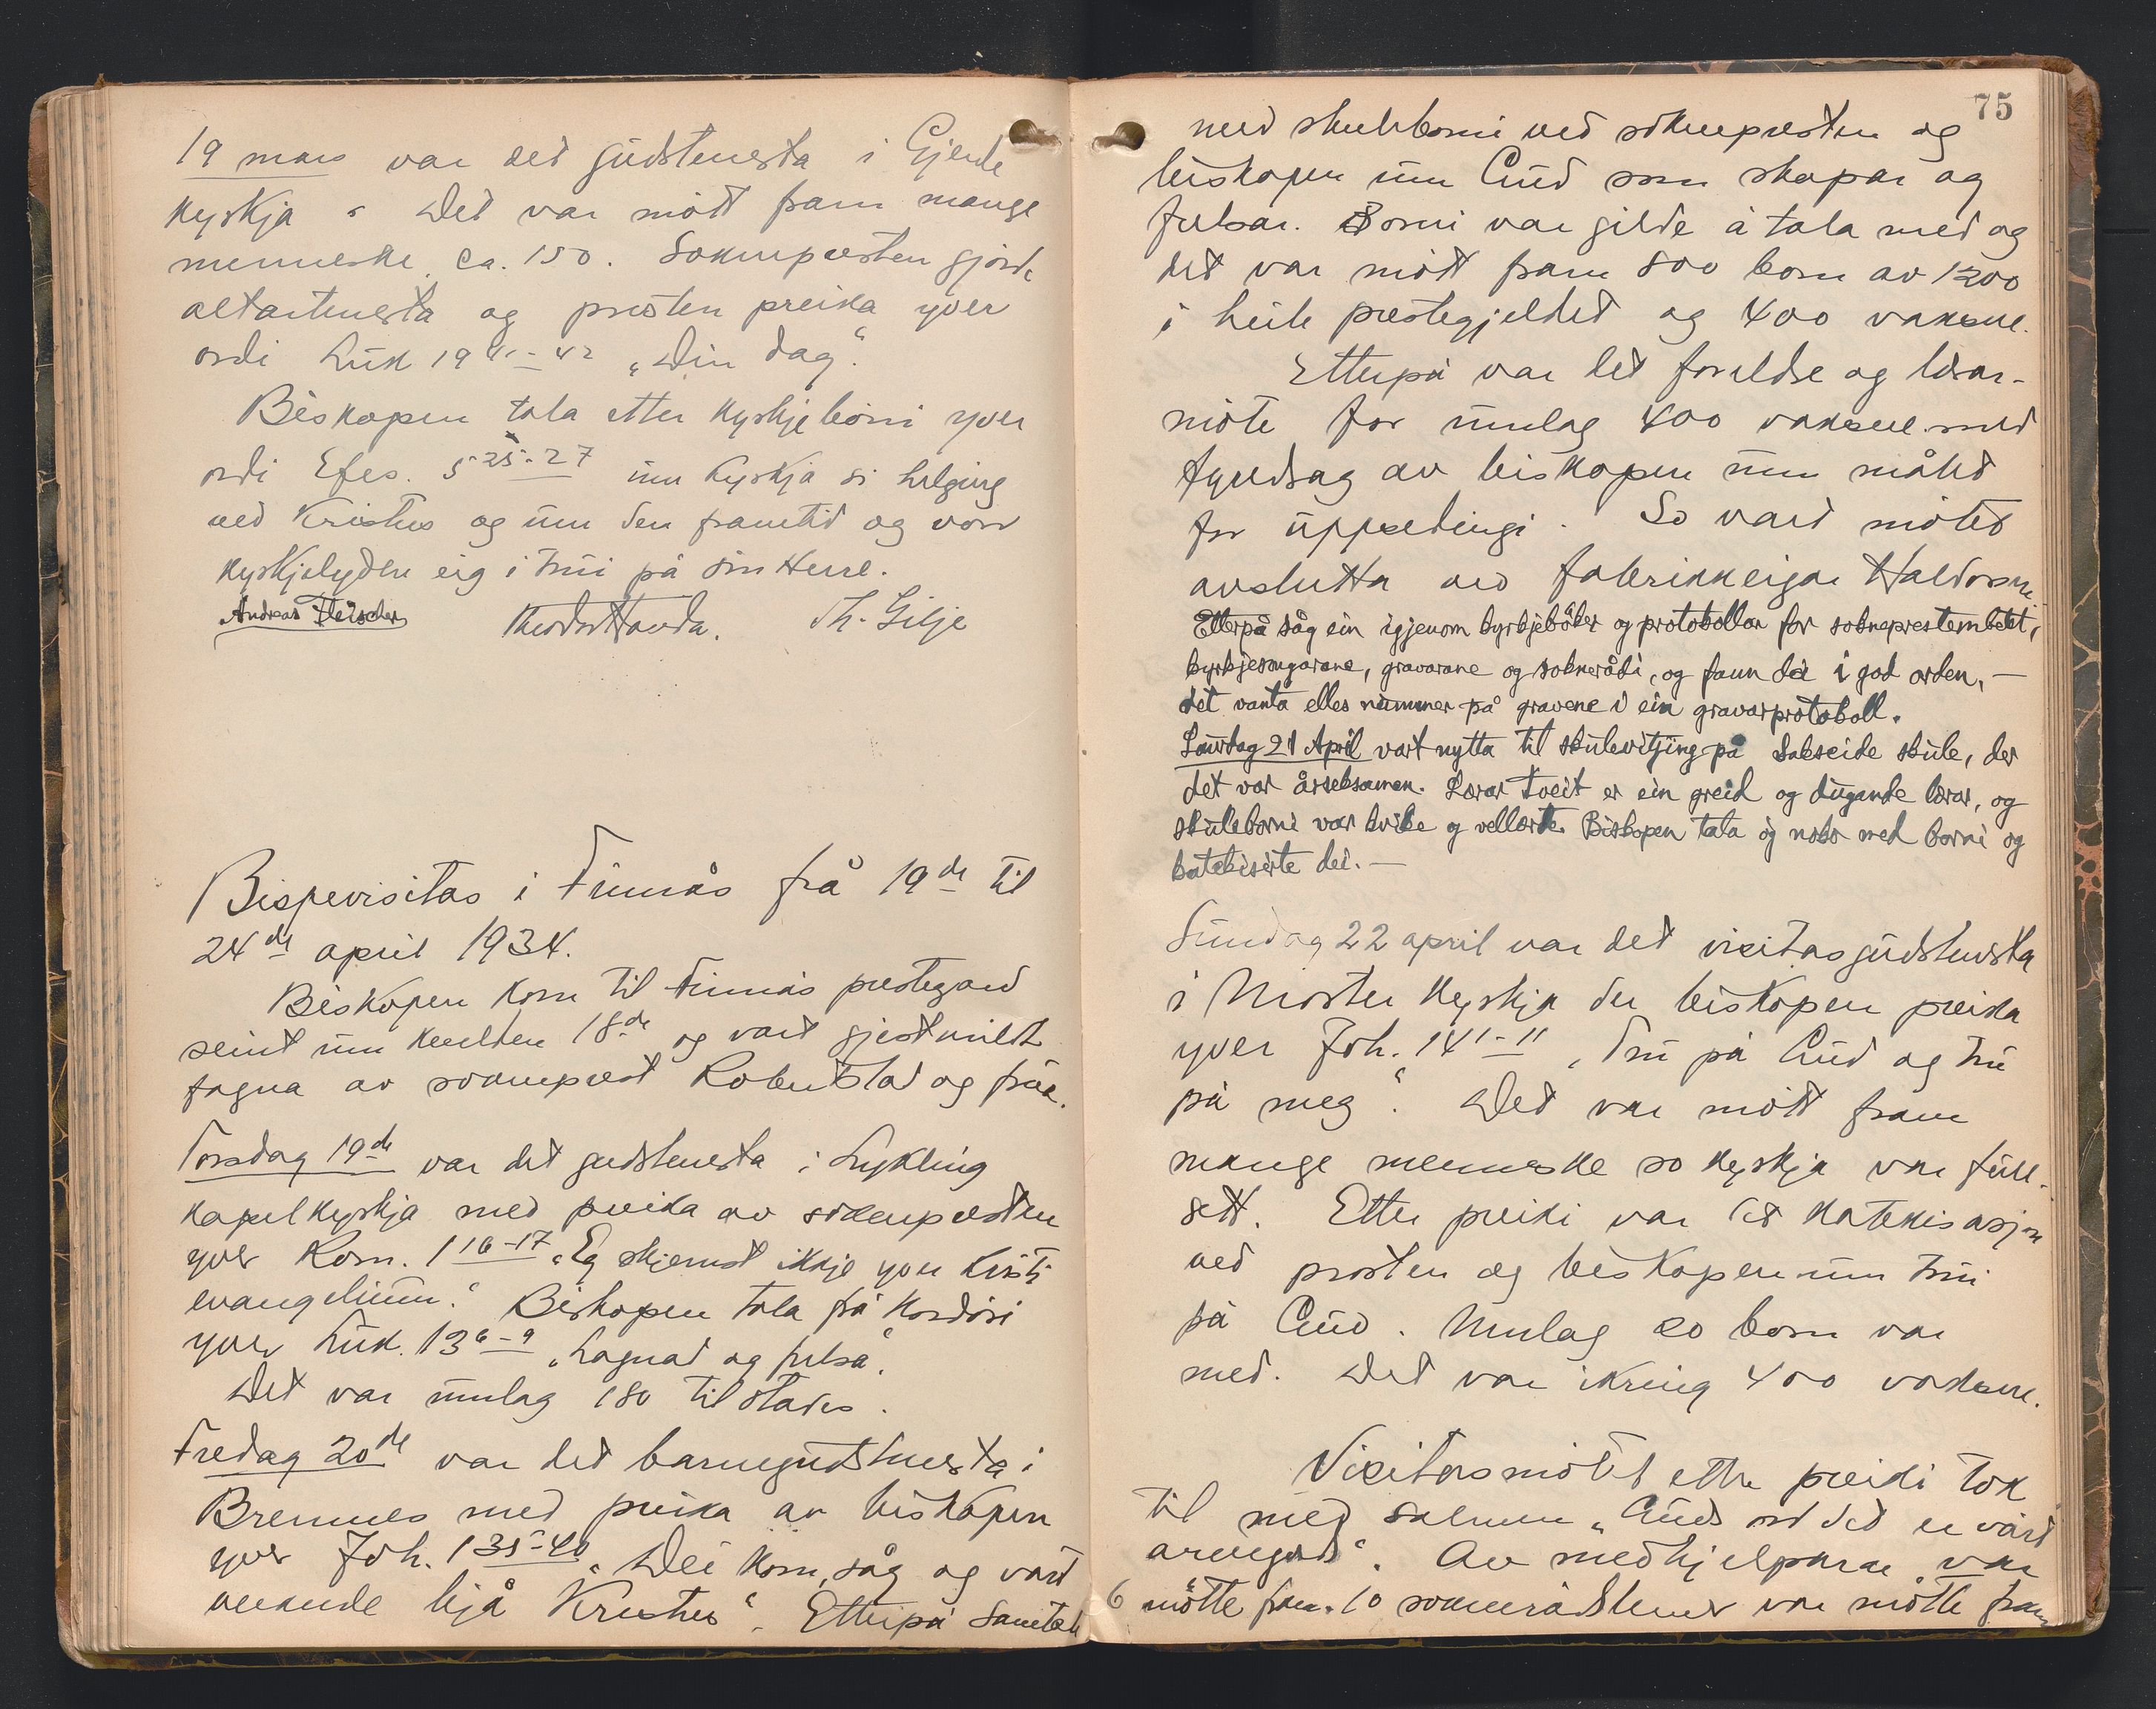 19 mars var det gudstenesta i Gjerde
kyrkja. Det var mött fram mange
menneske, ca. 150. Soknepresten gjorde
altartenesta og prosten preika yver
ordi Luk 19 41-42 „Din dag“.
Biskopen tala etter kyrkjebøni yver
ordi Efes. 5 25-27 um kyrkja si helging
ved Kristus og um den framtid og von
kyrkjelyden eig i trui på sin Herre.
Andreas Fleischer Theodor Handa. Th. Gilje
Bispevisitas i Finnås frå 19de til
24de april 1934.
Biskopen kom til Finnås prestegard
seint um kvelden 18de og vart gjestmildt
fagna av sokneprest Robertstad og frua.
Torsdag 19de var det gudstenesta i Lykling
kapelkyrkja med preika av soknepresten
yver Rom. 1 16-17 „Eg skjemst ikkje yver Kristi
evangelium.“ Biskopen tala frå kordøri
yver Luk. 13 6-9 „Lagnad og frelsa“.
Det var umlag 180 til stades.
Fredag 20de var det barnegudstenesta i
Bremnes med preika av biskopen
yver Joh. 1 35-40 „Dei kom, såg og vart
verande hjå Kristus“. Etterpå samtale
75
med skuleborni ved soknepresten og
biskopen um Gud som skapar og
frelsar. Borni var gilde å tala med og
det var mött fram 800 born av 1200
i heile prestegjeldet og 400 vaksne.
Etterpå var det foreldre og lærar-
möte for umlag 400 vaksne med
fyredrag av biskopen um målet
for uppsedingi. So vart mötet
avslutta ved fabrikkeigar Haldorsen.
Etterpå såg ein igjenom kyrkjebøker og protokollar for sokneprestembetet,
kyrkjesongarane, gravarane og soknerådi, og fann dei i god orden, —
det vanta elles nummer på gravene i ein gravarprotokoll.
Laurdag 21 April vart nytta til skulevitjing på Sakseide skule, der
det var årseksamen. Lærar Tveit er ein greid og dugande lærar, og
skuleborni var kvike og vellærde. Biskopen tala òg noko med borni og
katekiserte dei. —
Sundag 22 april var det visitasgudstenesta
i Moster kyrkja der biskopen preika
yver Joh. 14 1-11 „Tru på Gud og tru
på meg“. Det var mött fram
mange menneske so kyrkja var full-
sett. Etter preiki var det katekisasjon
ved prosten og biskopen um trui
på Gud. Umlag 20 born var
med. Det var ikring 400 vaksne.
Visitasmötet etter preiki tok
til med salmen „Guds ord det er vårt
arvegods“. Av medhjelparar var
6 mötte fram. 10 soknerådslemer var mötte fram